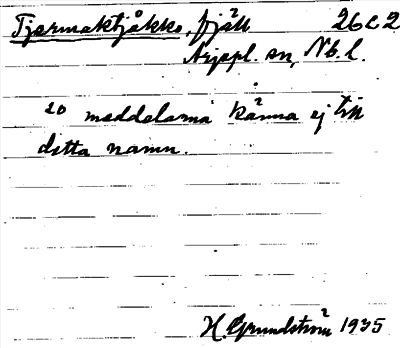 Tjermaktjåkko, fjäll 26C2
Arjepl. sn, Nb. l.
20 meddelarna känna ej till
detta namn.
H. Grundström 1935